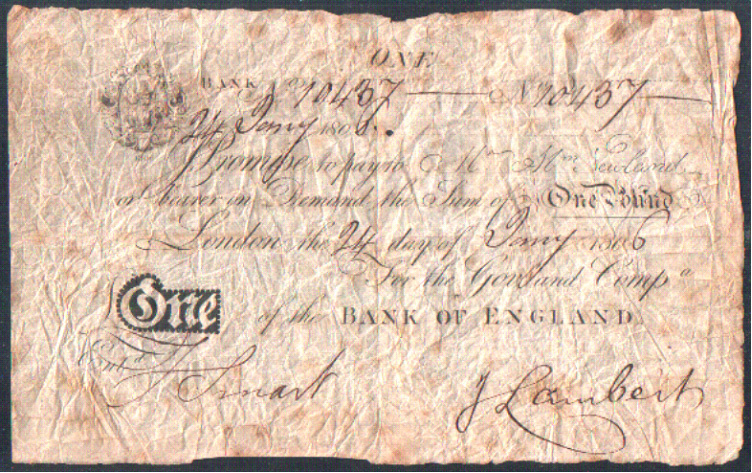 ONE
BANK No 10437 No 10437
24 Jany 1806.
I Promise to pay to Mr Abm Newland
or bearer on Demand the Sum of One Pound
London the 24 day of Jany 1806
For the Govr and Compa
One of the BANK OF ENGLAND
Entd J Smart J Lambert